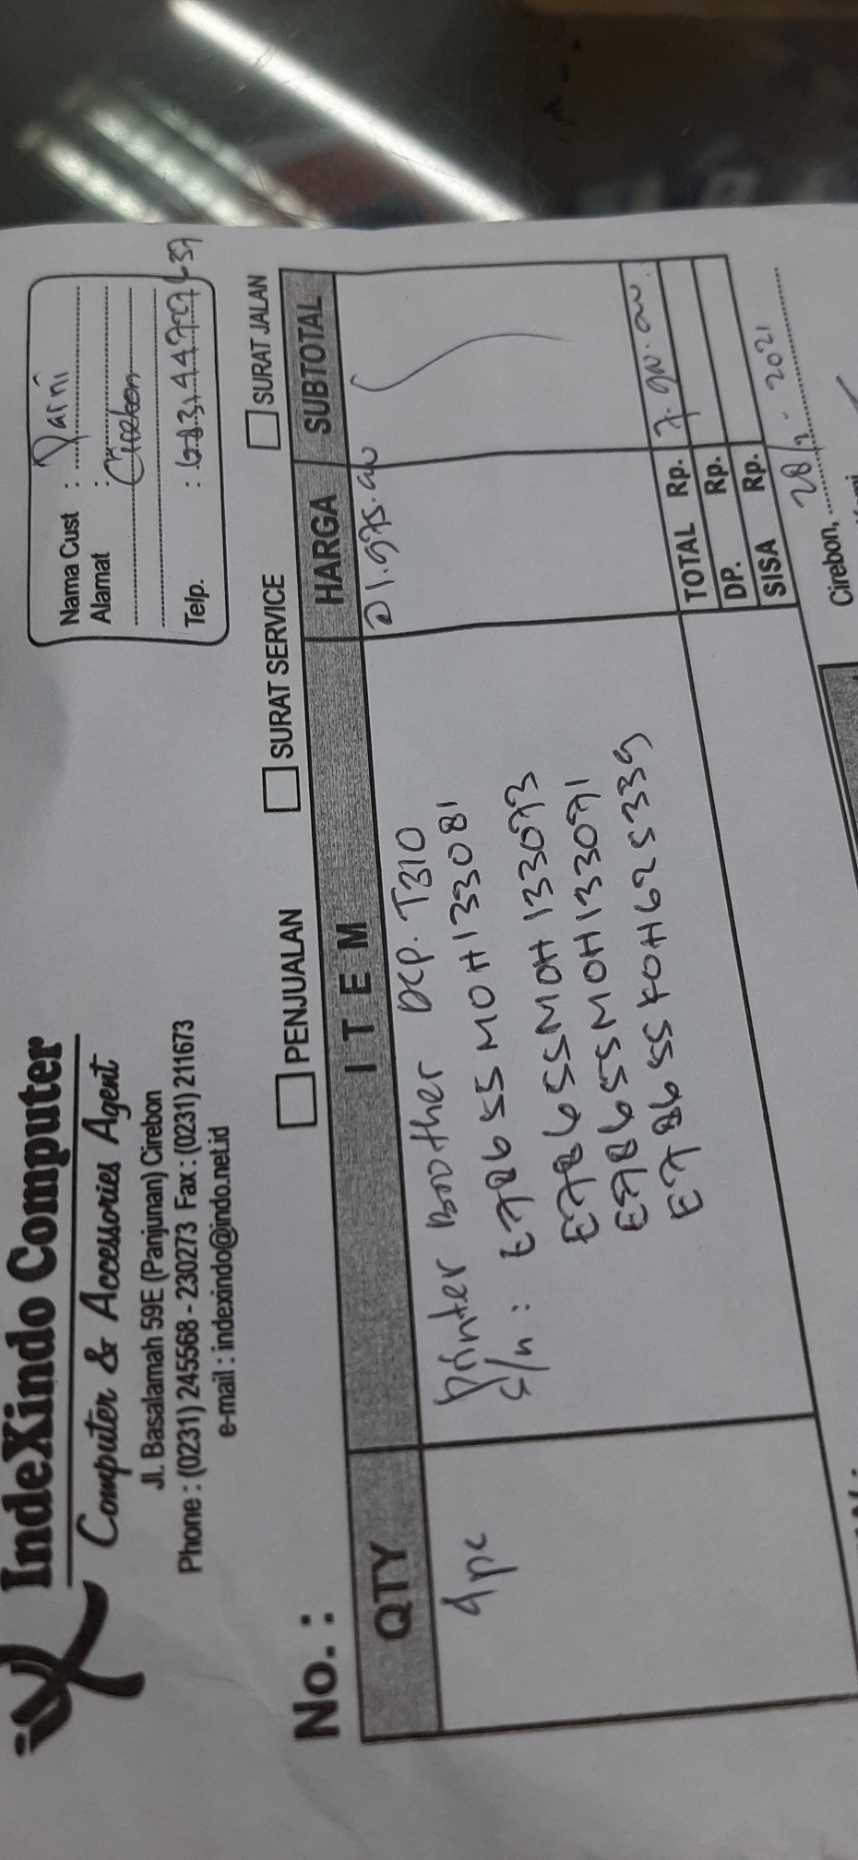 IndeXindo Computer
Computer & Accessories Agent
Jl. Basalamah 59E (Panjunan) Cirebon
Phone : (0231) 245568 - 230273 Fax : (0231) 211673
e-mail : indexindo@indo.net.id
Nama Cust : Darni
Alamat : Cirebon
Telp. :
No. :
PENJUALAN SURAT SERVICE SURAT JALAN
QTY ITEM HARGA SUBTOTAL
4pc Printer Brother DCP. T310 @1.975.000
S/n : E78655M0H133081
E78655M0H133093
E78655M0H133091
E78655F0H625339
TOTAL Rp. 7.900.000.
DP. Rp.
SISA Rp.
Cirebon, 28/2 - 2021